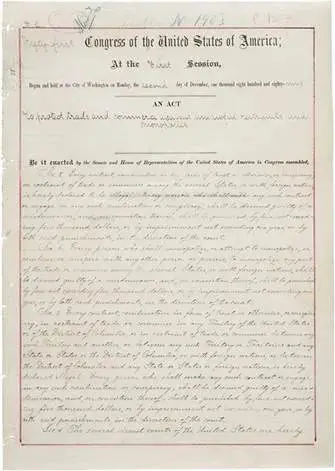 Fifty-first
Congress of the United States of America;
At the First Session,
Begun and held at the City of Washington on Monday, the second day of December, one thousand eight hundred and eighty-nine
AN ACT
To protect trade and commerce against unlawful restraints and
monopolies
Be it enacted by the Senate and House of Representatives of the United States of America in Congress assembled,
Sec. 1. Every contract, combination in the form of trust or otherwise, or conspiracy,
in restraint of trade or commerce among the several States, or with foreign nations,
is hereby declared to be illegal. Every person who shall make any such contract
or engage in any such combination or conspiracy, shall be deemed guilty of a
misdemeanor, and, on conviction thereof, shall be punished by fine not exceed-
ing five thousand dollars, or by imprisonment not exceeding one year, or by
both said punishments, in the discretion of the court.
Sec. 2. Every person who shall monopolize, or attempt to monopolize, or
combine or conspire with any other person or persons, to monopolize any part
of the trade or commerce among the several States, or with foreign nations, shall
be deemed guilty of a misdemeanor, and, on conviction thereof, shall be punished
by fine not exceeding five thousand dollars, or by imprisonment not exceeding one
year, or by both said punishments, in the discretion of the court.
Sec. 3. Every contract, combination in form of trust or otherwise, or conspir-
acy, in restraint of trade or commerce in any Territory of the United States
or of the District of Columbia, or in restraint of trade or commerce between any
such Territory and another, or between any such Territory or Territories and any
State or States or the District of Columbia, or with foreign nations, or between
the District of Columbia and any State or States or foreign nations, is hereby
declared illegal. Every person who shall make any such contract or engage
in any such combination or conspiracy, shall be deemed guilty of a misde-
meanor, and, on conviction thereof, shall be punished by fine not exceed-
ing five thousand dollars, or by imprisonment not exceeding one year, or by
both said punishments, in the discretion of the court.
Sec. 4. The several circuit courts of the United States are hereby